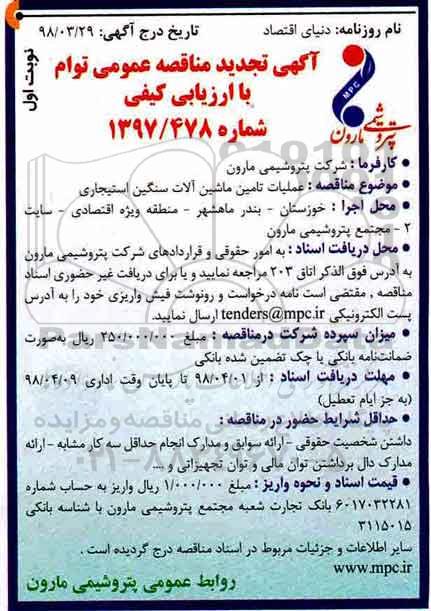 نام روزنامه: دنیای اقتصاد
تاریخ درج آگهی: ۹۸/۰۳/۲۹
نوبت اول
آگهی تجدید مناقصه عمومی توام
با ارزیابی کیفی
شماره ۱۳۹۷/۴۷۸
MPC
پتروشیمی مارون
• کارفرما : شرکت پتروشیمی مارون
• موضوع مناقصه : عملیات تامین ماشین آلات سنگین استیجاری
• محل اجرا : خوزستان - بندر ماهشهر - منطقه ویژه اقتصادی - سایت
۲ - مجتمع پتروشیمی مارون
• محل دریافت اسناد : به امور حقوقی و قراردادهای شرکت پتروشیمی مارون
به آدرس فوق الذکر اتاق ۲۰۳ مراجعه نمایید و یا برای دریافت غیر حضوری اسناد
مناقصه , مقتضی است نامه درخواست و رونوشت فیش واریزی خود را به آدرس
پست الکترونیکی tenders@mpc.ir ارسال نمایید.
• میزان سپرده شرکت درمناقصه : مبلغ ۳۵۰/۰۰۰/۰۰۰ ریال به‌صورت
ضمانت‌نامه بانکی یا چک تضمین شده بانکی
• مهلت دریافت اسناد : از ۹۸/۰۴/۰۱ تا پایان وقت اداری ۹۸/۰۴/۰۹
(به جز ایام تعطیل)
• حداقل شرایط حضور در مناقصه :
داشتن شخصیت حقوقی - ارائه سوابق و مدارک انجام حداقل سه کار مشابه - ارائه
مدارک دال برداشتن توان مالی و توان تجهیزاتی و ....
• قیمت اسناد و نحوه واریز : مبلغ ۱/۰۰۰/۰۰۰ ریال واریز به حساب شماره
۶۰۱۷۰۳۲۲۸۱ بانک تجارت شعبه مجتمع پتروشیمی مارون با شناسه بانکی
۳۱۱۵۰۱۵
سایر اطلاعات و جزئیات مربوط در اسناد مناقصه درج گردیده است .
www.mpc.ir
روابط عمومی پتروشیمی مارون